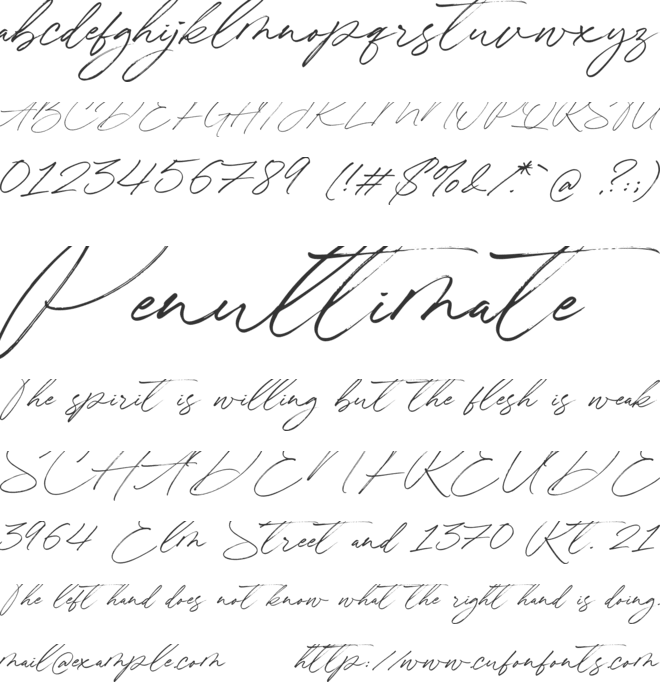 abcdefghijklmnopqrstuvwxyz
ABCDEFGHIJKLMNOPQRSTU
0123456789 (!#$%&/.*`@ .?:;)
Penultimate
The spirit is willing but the flesh is weak
SCHADENFREUDE
3964 Elm Street and 1370 Rt. 21
The left hand does not know what the right hand is doing.
mail@example.com http://www.cufonfonts.com